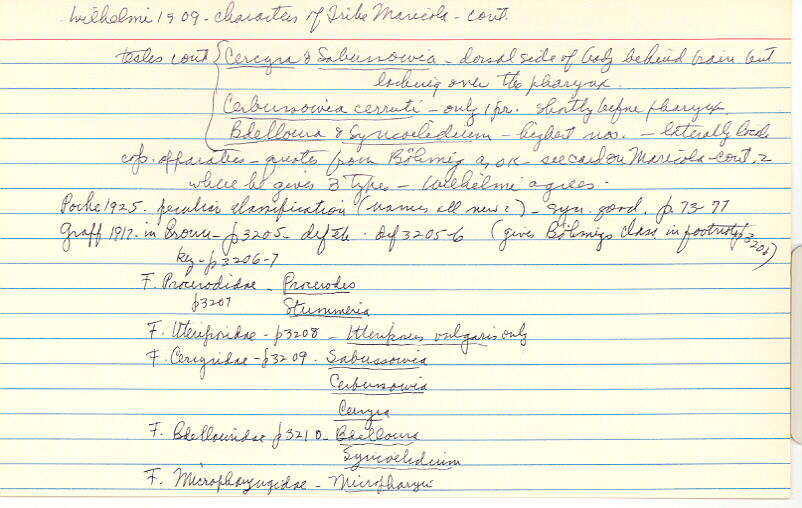 Wilhelmi 1909 - characters of Tribe Maricola - cont.
testes cont { Cercyra & Sabussowia - dorsal side of body behind brain but
lacking over the pharynx.
Cerbussowia cerruti - only 1 pr. shortly before pharynx.
Bdelloura & Syncoelidium - highest nos. - laterally loc
cop. apparatus - quotes from Böhmig as OK - see card on Maricola - cont. 2
where he gives 3 types - Wilhelmi agrees -
Poche 1925. peculiar classification (names all new?) - syn. good. p. 73-77
Graff 1917. in Bronn - p3205 - def 3205-6 (gives Böhmigs class in footnote p3206)
key - p3206-7
F. Procerodidae - Procerodes
p3207
Stummeria
F. Uteriporidae - p3208 - Uteriporus vulgaris only
F. Cercyridae - p3209 - Sabussowia
Cerbussowia
Cercyra
F. Bdellouridae p3210 - Bdelloura
Syncoelidium
F. Micropharyngidae - Micropharynx